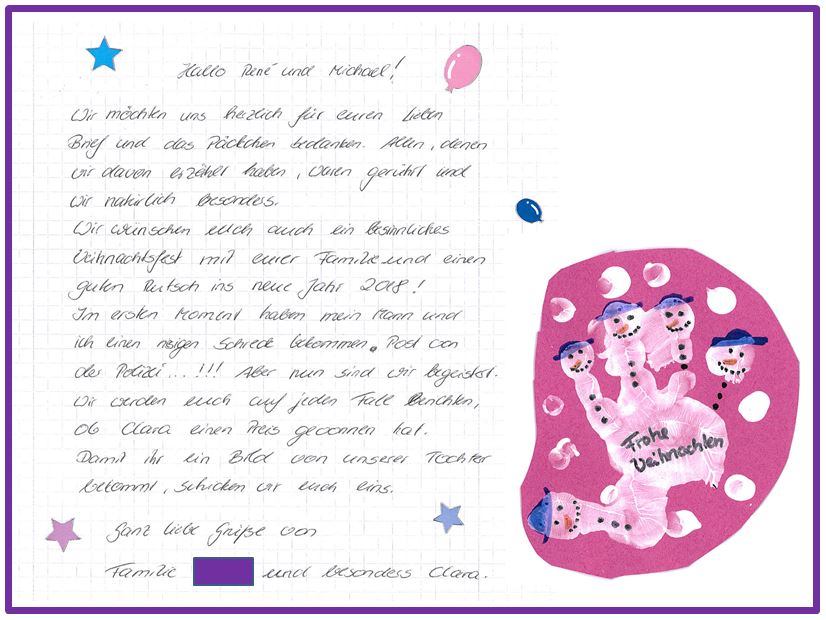 Hallo René und Michael!
Wir möchten uns herzlich für euren lieben
Brief und das Päckchen bedanken. Allen, denen
wir davon erzählt haben, waren gerührt und
wir natürlich besonders.
Wir wünschen euch auch ein besinnliches
Weihnachtsfest mit eurer Familie und einen
guten Rutsch ins neue Jahr 2018!
Im ersten Moment haben mein Mann und
ich einen riesigen Schreck bekommen. Post von
der Polizei...!!! Aber nun sind wir begeistert.
Wir werden euch auf jeden Fall berichten,
ob Clara einen Preis gewonnen hat.
Damit ihr ein Bild von unserer Tochter
bekommt, schicken wir euch eins.
Ganz liebe Grüße von
Familie und besonders Clara.
Frohe
Weihnachten